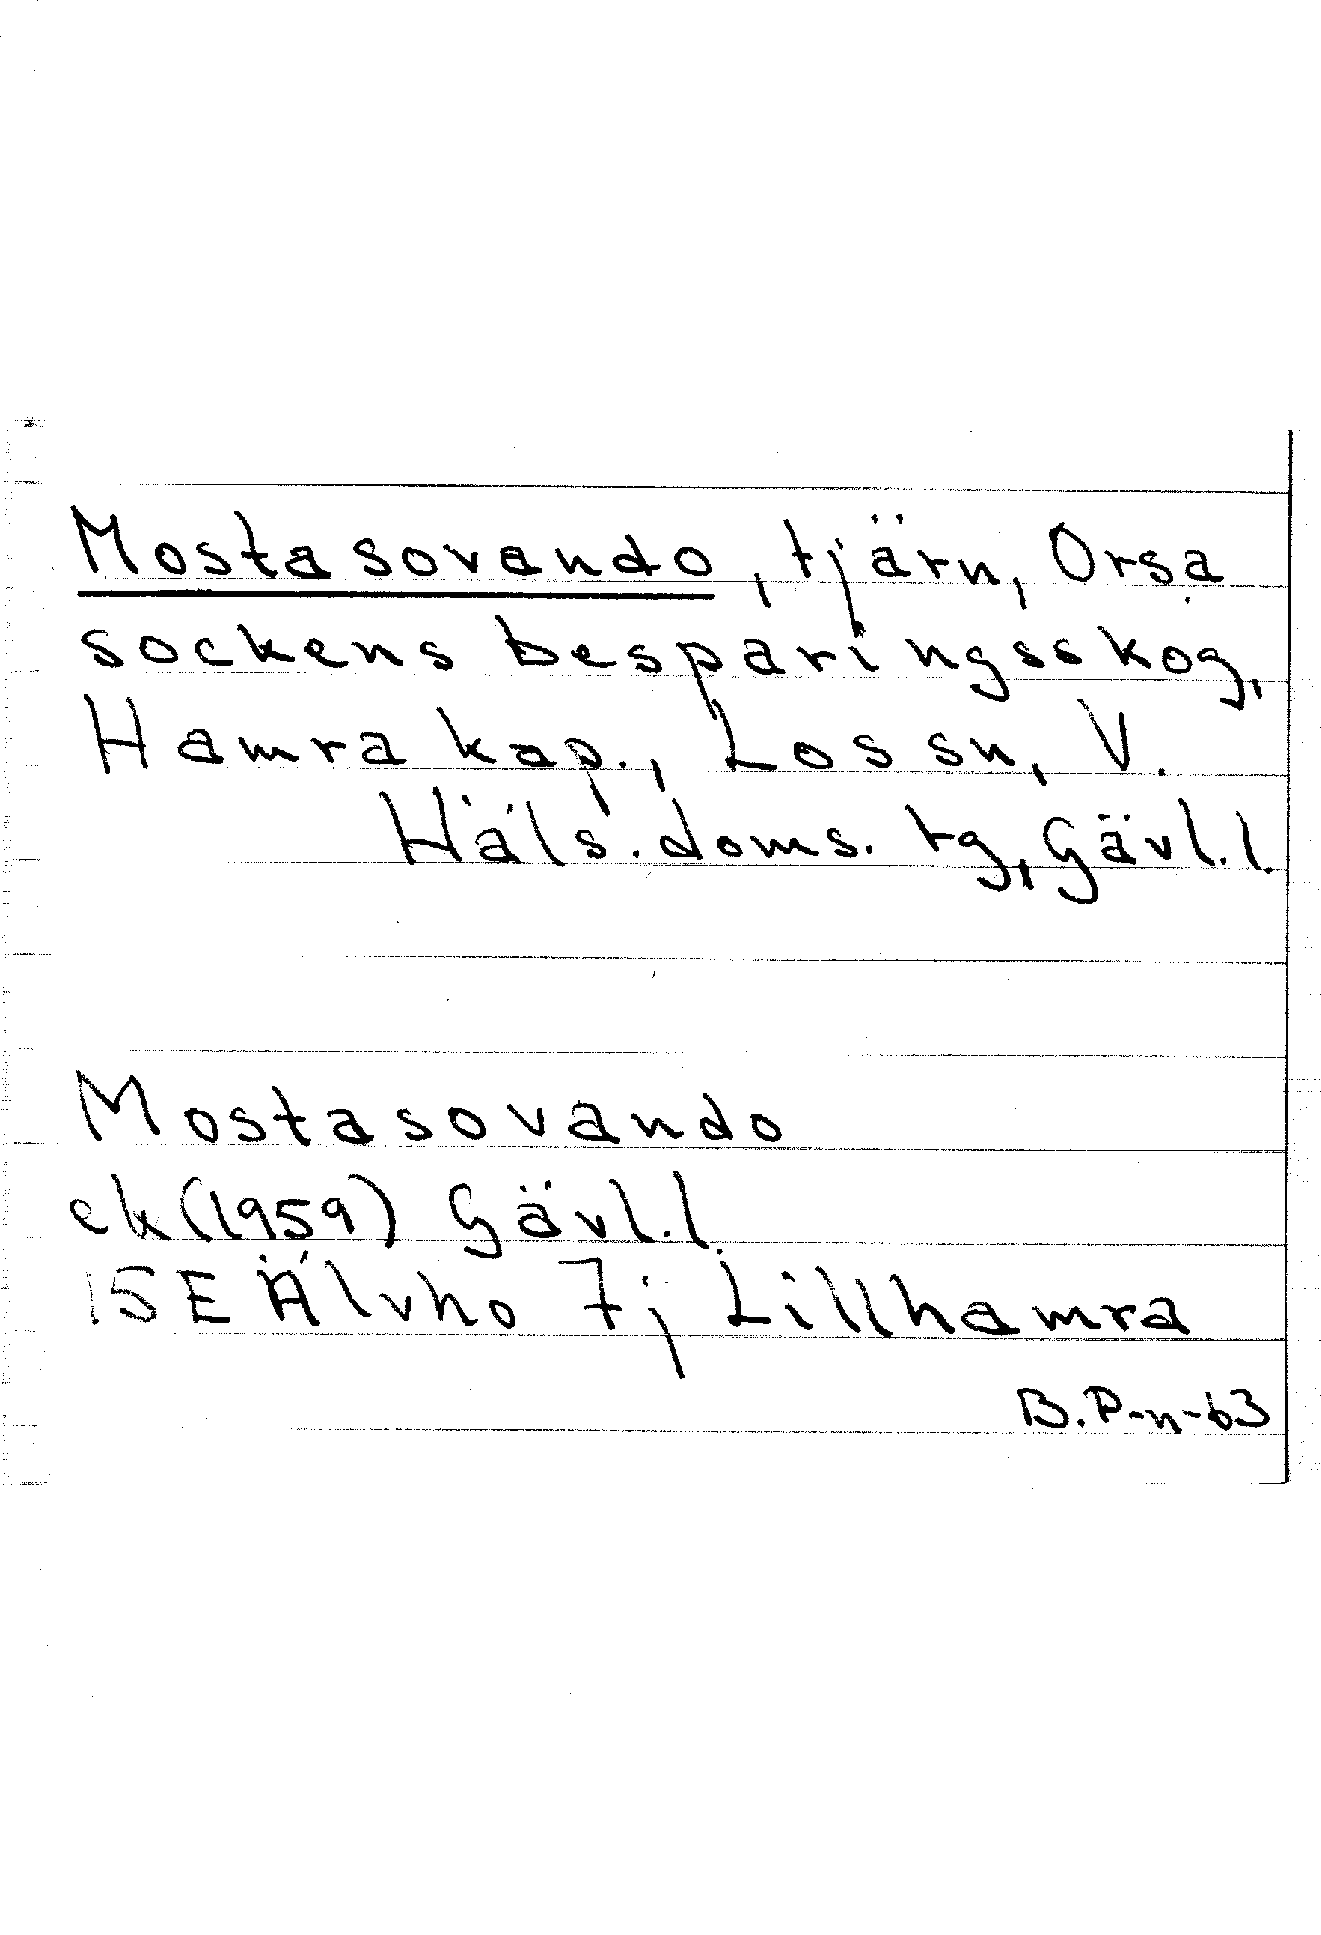 Mostasovando, tjärn, Orsa
sockens besparingsskog,
Hamra kap., Los sn, V.
Häls. doms. tg, Gävl.l.
Mostasovando
ek (1959) Gävl.l.
15E Älvho 7j Lillhamra
B.P-n-63